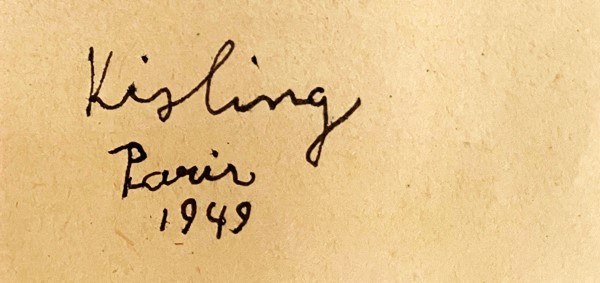 Kisling
Paris
1949